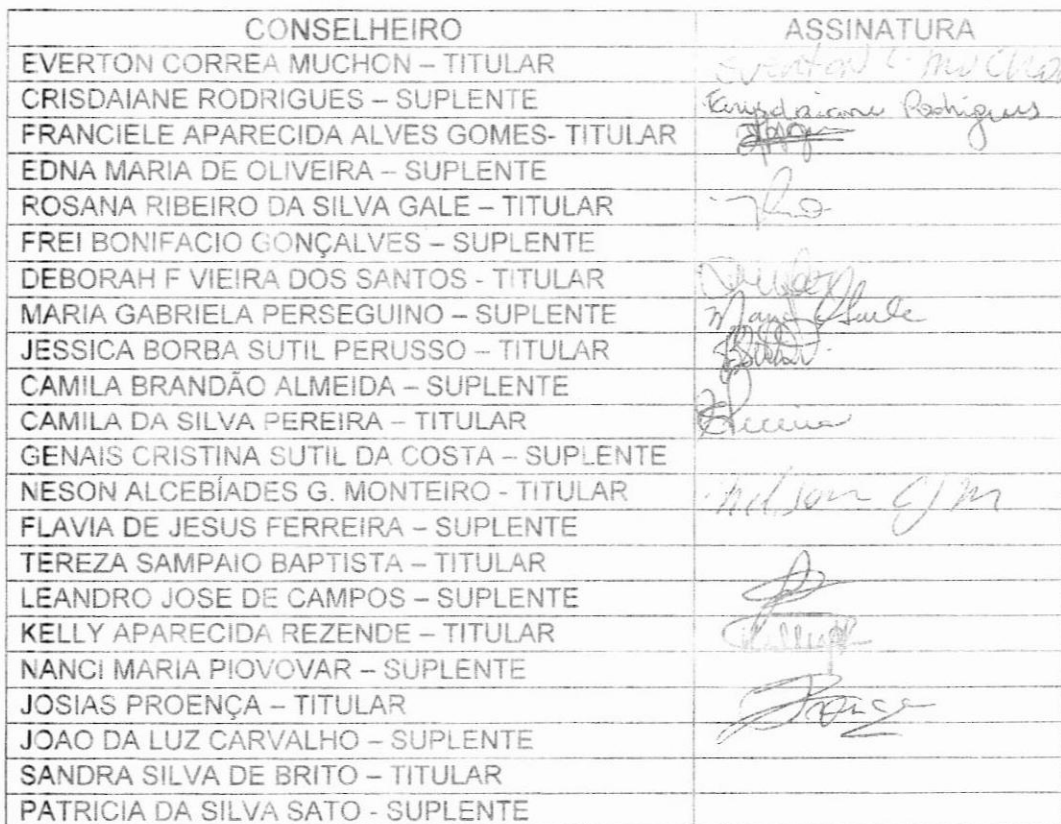 CONSELHEIRO ASSINATURA
EVERTON CORREA MUCHON – TITULAR Everton C. Muchon
CRISDAIANE RODRIGUES – SUPLENTE Rodrigues
FRANCIELE APARECIDA ALVES GOMES- TITULAR
EDNA MARIA DE OLIVEIRA – SUPLENTE
ROSANA RIBEIRO DA SILVA GALE – TITULAR
FREI BONIFACIO GONÇALVES – SUPLENTE
DEBORAH F VIEIRA DOS SANTOS - TITULAR
MARIA GABRIELA PERSEGUINO – SUPLENTE
JESSICA BORBA SUTIL PERUSSO – TITULAR
CAMILA BRANDÃO ALMEIDA – SUPLENTE
CAMILA DA SILVA PEREIRA – TITULAR
GENAIS CRISTINA SUTIL DA COSTA – SUPLENTE
NESON ALCEBÍADES G. MONTEIRO - TITULAR
FLAVIA DE JESUS FERREIRA – SUPLENTE
TEREZA SAMPAIO BAPTISTA – TITULAR
LEANDRO JOSE DE CAMPOS – SUPLENTE
KELLY APARECIDA REZENDE – TITULAR
NANCI MARIA PIOVOVAR – SUPLENTE
JOSIAS PROENÇA – TITULAR
JOAO DA LUZ CARVALHO – SUPLENTE
SANDRA SILVA DE BRITO – TITULAR
PATRICIA DA SILVA SATO - SUPLENTE